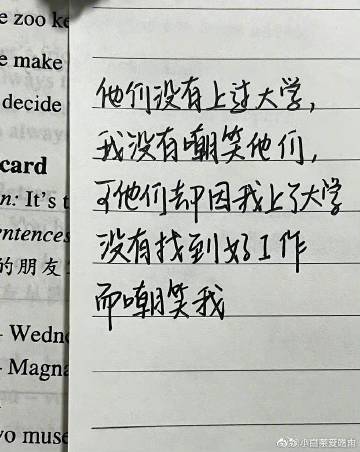 e zoo ke
e make
decide
card
n: It's t
entences
的朋友
- Wedn
- Magna
yo muse
他们没有上过大学，
我没有嘲笑他们，
可他们却因我上了大学
没有找到好工作
而嘲笑我